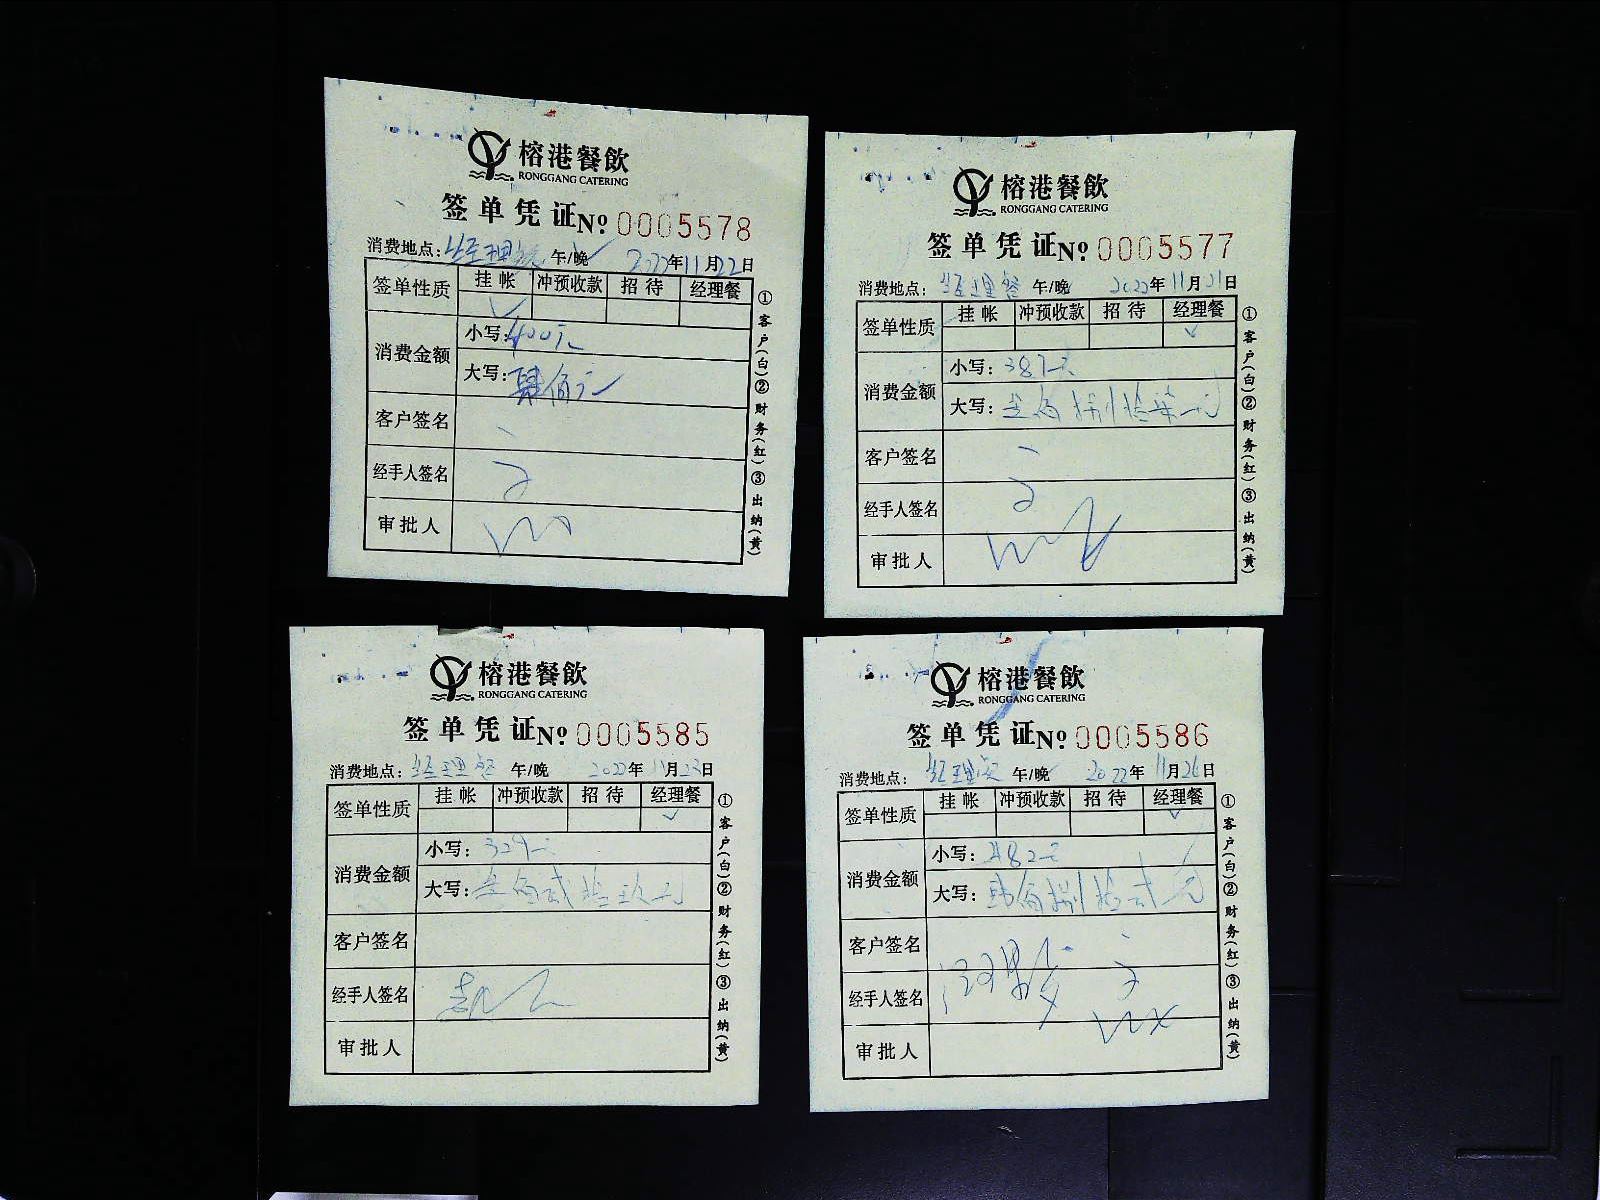 榕港餐飲
RONGGANG CATERING
签单凭证 № 0005578
消费地点: 经理 午/晚 2022年11月22日
签单性质 挂帐 冲预收款 招待 经理餐
✓
消费金额 小写: 400元
大写: 肆佰元
客户签名
经手人签名
审批人
①客户(白)②财务(红)③出纳(黄)
榕港餐飲
RONGGANG CATERING
签单凭证 № 0005577
消费地点: 经理餐 午/晚 2022年11月21日
签单性质 挂帐 冲预收款 招待 经理餐
✓
消费金额 小写: 387元
大写: 叁佰捌拾柒元
客户签名
经手人签名
审批人
①客户(白)②财务(红)③出纳(黄)
榕港餐飲
RONGGANG CATERING
签单凭证 № 0005585
消费地点: 经理餐 午/晚 2022年11月23日
签单性质 挂帐 冲预收款 招待 经理餐
✓
消费金额 小写: 329元
大写: 叁佰贰拾玖元
客户签名
经手人签名
审批人
①客户(白)②财务(红)③出纳(黄)
榕港餐飲
RONGGANG CATERING
签单凭证 № 0005586
消费地点: 经理 午/晚 2022年11月26日
签单性质 挂帐 冲预收款 招待 经理餐
✓
消费金额 小写: 482元
大写: 肆佰捌拾贰元
客户签名
经手人签名
审批人
①客户(白)②财务(红)③出纳(黄)